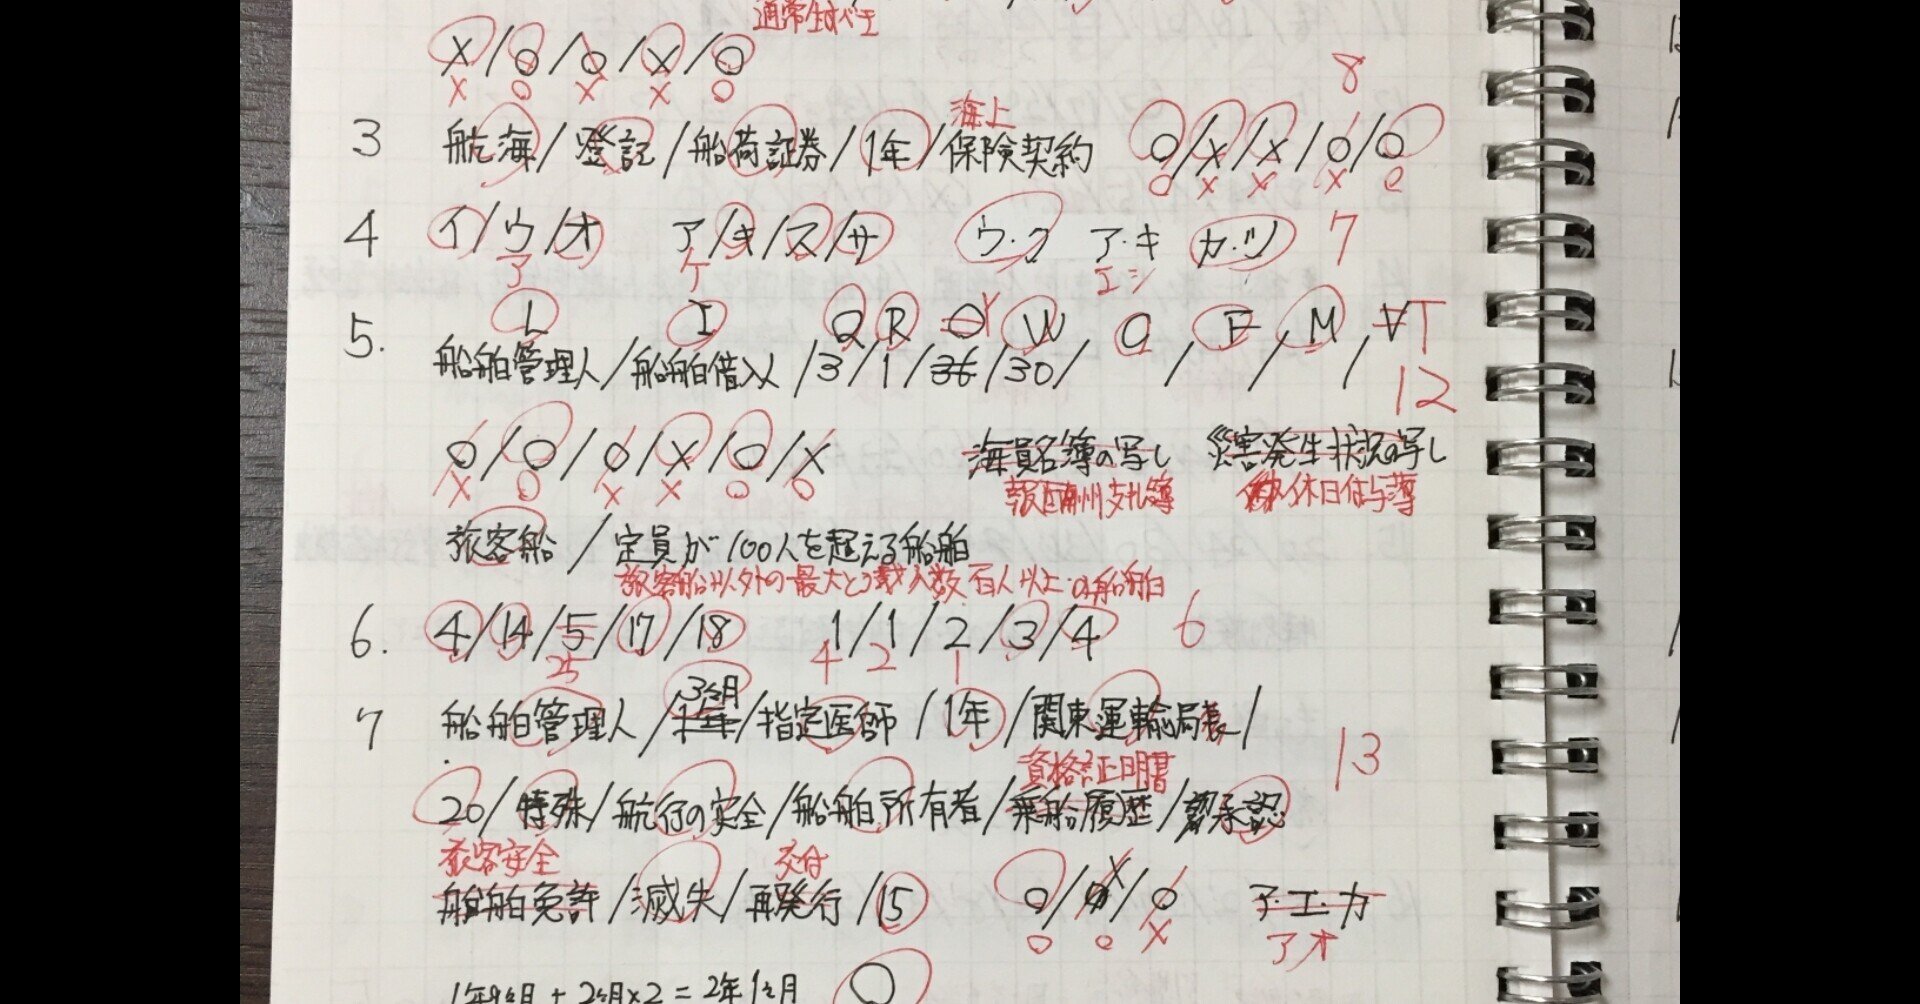 通常全すべて
× / ○ / ○ / × / ○
× ○ × × ○
8
海上
3 航海 / 登記 / 船荷証券 / 1年 / 保険契約 ○ / × / × / ○ / ○
○ × × × ○
4 イ / ウ / オ ア / キ / ス / サ ウ・ク ア・キ カ・ツ 7
ア ケ エ シ
L I Q R O Y W O F M T
5. 船舶管理人 / 船舶借入 / 3 / 1 / 36 / 30 / / / /
12
○ / ○ / ○ / × / ○ / × 海員名簿の写し 災害発生状況の写し
× ○ × × ○ ○ 報酬支払簿 休日付与簿
旅客船 / 定員が100人を超える船舶
旅客船以外の最大とう載人数百人以上の船舶
6. 4 / 14 / 5 / 17 / 18 1 / 1 / 2 / 3 / 4 6
25 4 2 1
3ヶ月
7 船舶管理人 / 1年 / 指定医師 / 1年 / 関東運輸局長 /
資格証明書 13
20 / 特殊 / 航行の安全 / 船舶所有者 / 乗船履歴 / 承認
旅客安全 交付
船舶免許 / 滅失 / 再発行 / 15 ○ / × / ○ ア・エ・カ
○ ○ × ア オ
1年9ヶ月 + 2ヶ月×2 = 2年1ヶ月 ○